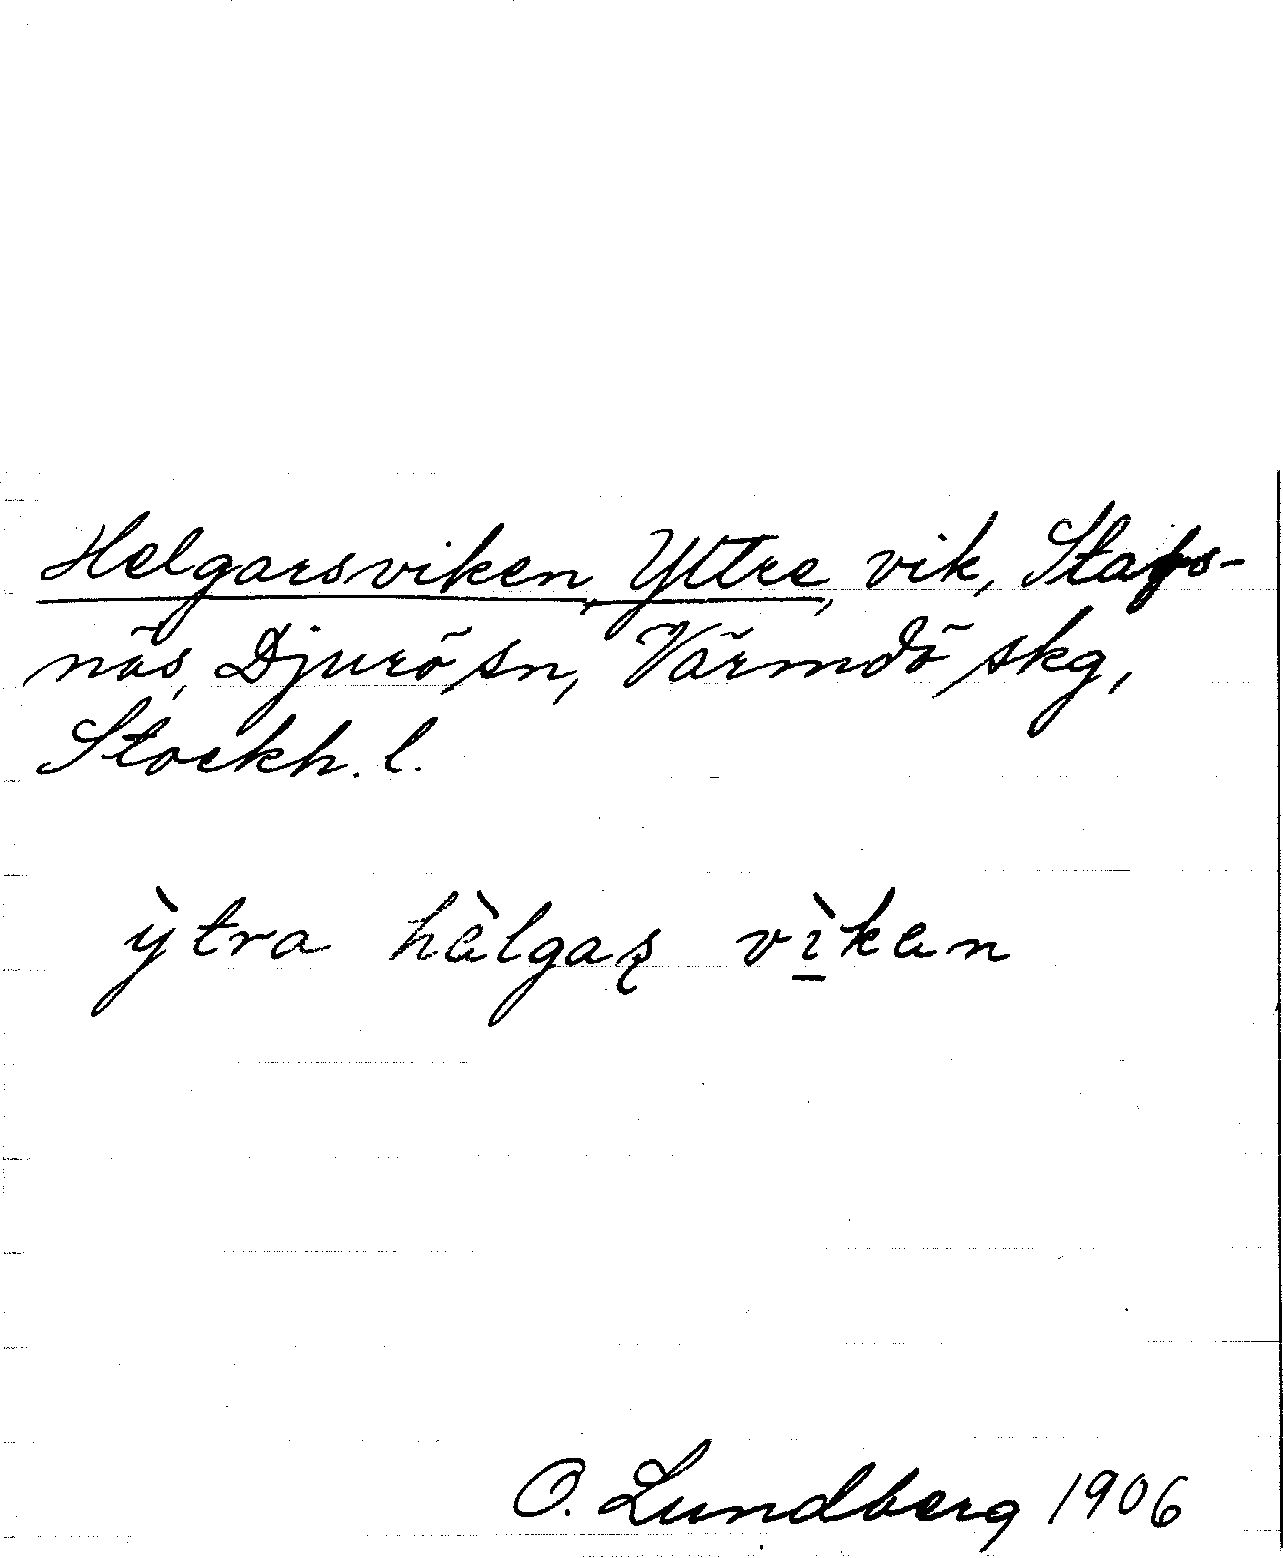 Helgarsviken, Yttre, vik, Stafs-
näs, Djurö sn, Värmdö skg,
Stockh. l.
ỳtra hàlgaʂ vı̱̀kan
O. Lundberg 1906